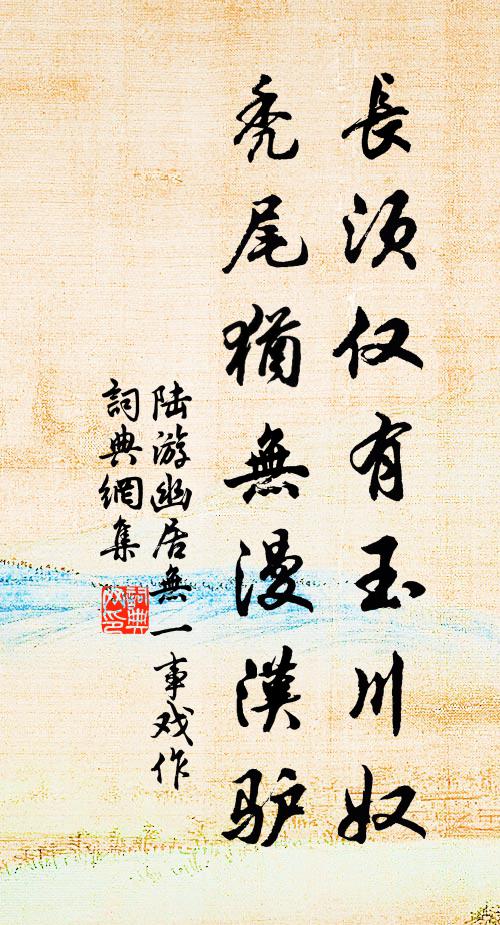 長须仅有玉川奴
秃尾猶無漫漢驴
陆游幽居無一事戏作
詞典網集